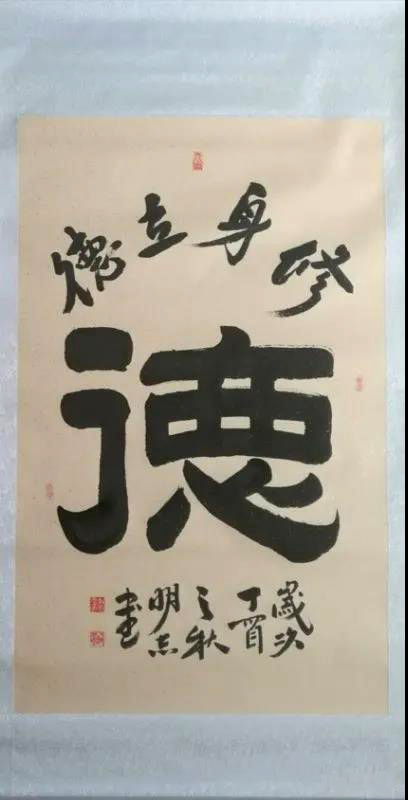 修身立德
德
歲次
丁酉
之秋
明志
書